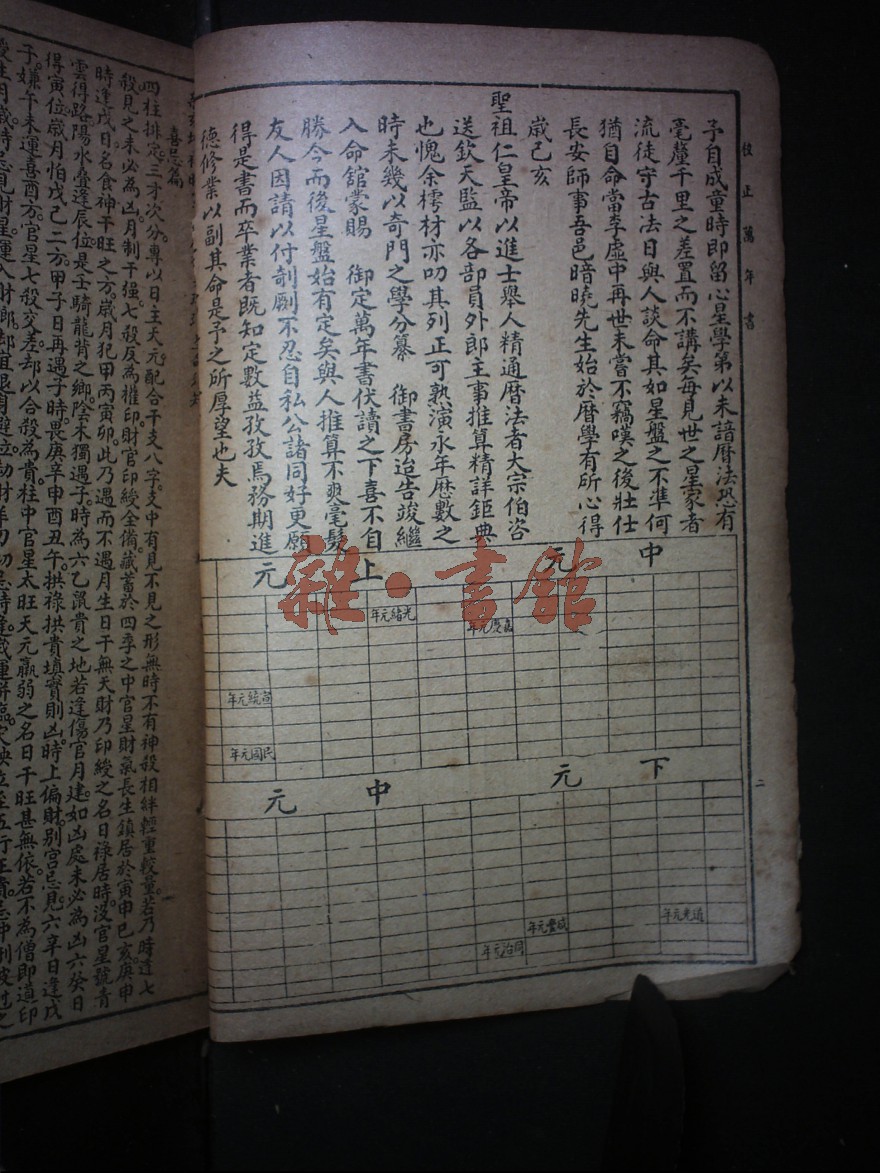 校正萬年書
予自成童時即留心星學第以未諳曆法恐有
毫釐千里之差置而不講矣每見世之星家者
流徒守古法日與人談命其如星盤之不準何
猶自命當李虛中再世未嘗不竊嘆之後壯仕
長安師事吾邑暗曉先生始於曆學有所心得
歲己亥
聖祖仁皇帝以進士舉人精通曆法者大宗伯咨
送欽天監以各部員外郎主事推算精詳鉅典
也愧余樗材亦叨其列正可熟演永年曆數之
時未幾以奇門之學分纂 御書房迨告竣繼
入命館蒙賜 御定萬年書伏讀之下喜不自
勝今而後星盤始有定矣與人推算不爽毫髮
友人因請以付剞劂不忍自私公諸同好更願
得是書而卒業者既知定數益孜孜焉務期進
德修業以副其命是予之所厚望也夫
中元
上元
嘉慶元年
光緒元年
宣統元年
民國元年
下元
中元
道光元年
咸豐元年
同治元年
二
雜·書館
喜忌篇
四柱排定三才次分專以日主天元配合干支八字支中有見不見之形無時不有神殺相絆輕重較量若乃時逢七
殺見之未必為凶月制干強七殺反為權印財官印綬全備藏蓄於四季之中官星財氣長生鎮居於寅申巳亥庚申
時逢戊日名食神干旺之方歲月犯甲丙寅卯此乃遇而不遇月生日干無天財乃印綬之名日祿居時沒官星號青
雲得路陽水疊逢辰位是壬騎龍背之鄉陰木獨遇子時為六乙鼠貴之地若逢傷官月建如凶處未必為凶六癸日
得寅位歲月怕戊己二方甲子日再遇子時畏庚辛申酉丑午拱祿拱貴填實則凶時上偏財別宮忌見六辛日逢戊
子嫌午未運喜酉方官星七殺交差却以合殺為貴柱中官星太旺天元羸弱之名日干旺甚無依若不為僧即道印